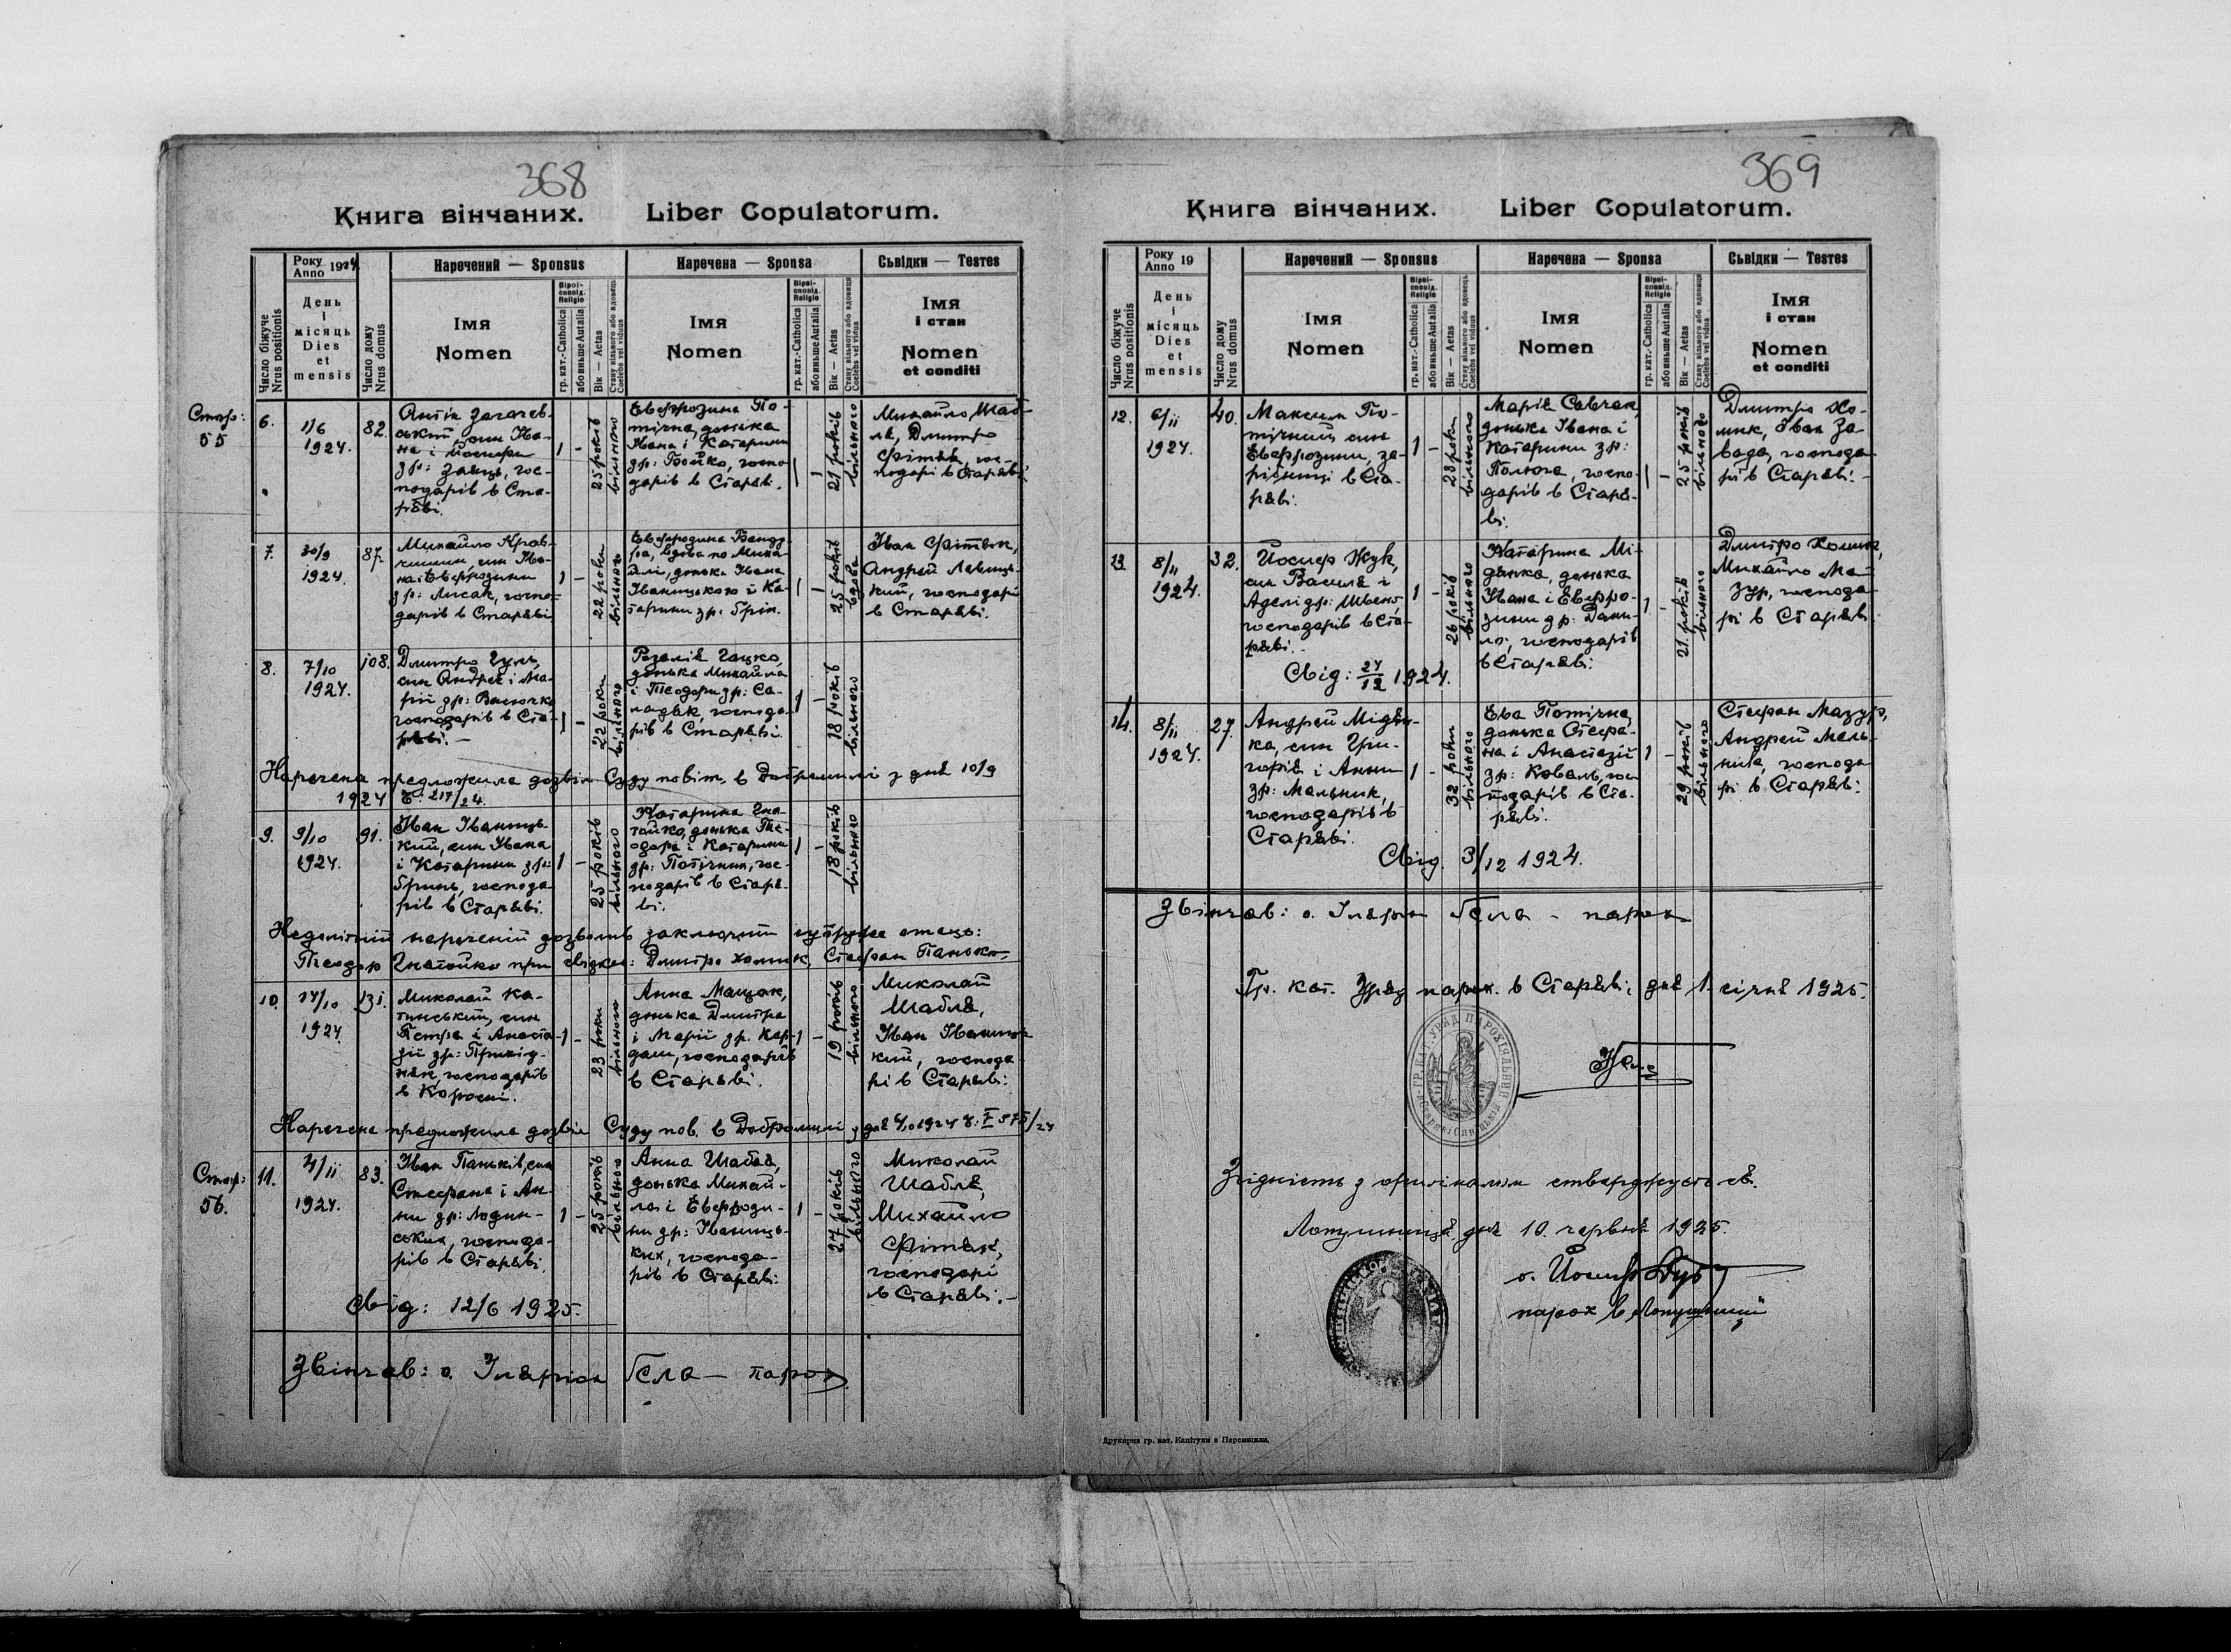 368
Книга вінчаних. Liber Copulatorum.
Число біжуче
Nrus positionis
Року
Anno 1924
День
і
місяць
Dies
et
mensis
Число дому
Nrus domus
Наречений — Sponsus
Імя
Nomen
Віроі-
сповід.
Religio
гр. кат.-Catholica
або иньше Aut alia
Вік — Aetas
Стану вільного або вдовець
Coelebs vel viduus
Наречена — Sponsa
Імя
Nomen
Віроі-
сповід.
Religio
гр. кат.-Catholica
або иньше Aut alia
Вік — Aetas
Стану вільного або вдовиця
Coelebs vel vidua
Сьвідки — Testes
Імя
і стан
Nomen
et conditi
Стор:
55
6.
1/6
1924.
82.
Антін
син Іва-
на і
зр: Заяць, гос-
подарів в Ста-
ряві.
1 -
25 років
вільного
Евфрозина По-
тічна, донька
Івана і Катарини
зр: Бойко, госпо-
дарів в Старяві.
1 1
21 років
вільного
Михайло Шаб-
ля, Дмитро
Фітяк, гос-
подарі в Старяві.
7.
30/9
1924.
87.
Михайло Крав-
син Іва-
на і Евфрозини
зр: Лисак, госпо-
дарів в Старяві
1 -
22 роки
вільного
Евфрозина
вдова по Миха-
йлі, донька Івана
Іваницького і Ка-
тарини зр: Грін.
1 1
25 років
вдова
Іван Фітяк,
Андрей Левиць-
кий, господарі
в Старяві.
8.
7/10
1924.
108.
Дмитро
син Андрея і Ма-
рії зр:
господарів в Ста-
ряві. —
1 -
22 роки
вільного
Розалія Гацко,
донька Михайла
і Теодори зр: Са-
ладяк, господа-
рів в Старяві.
1 -
18 років
вільного
Наречена предложила дозвіл Суду повіт. в Добромилі з дня 10/9
1924 Ч: 217/24.
9.
9/10
1924.
91.
Іван Іваниць-
кий, син Івана
і Катарини зр:
Гринь, господа-
рів в Старяві.
1 -
25 років
вільного
Катарина Гна-
тойко, донька Те-
одора і Катарини
зр: Потічних, гос-
подарів в Старя-
ві.
1 -
18 років
вільного
Недолітній нареченій дозволив заключити супруже отець:
Теодор Гнатойко при свідках: Дмитро Хомик, Стефан Панько.
10.
131.
1924.
Миколай Ка-
тинський, син
Петра і Анаста-
зії зр:
господарів
в
1 -
23 роки
вільного
Анна Мацак,
донька Дмитра
і Марії зр. Кор-
даш, господарів
в Старяві.
1 -
19 років
вільного
Миколай
Шабля,
Іван Іваниць-
кий, господа-
рі в Старяві:
Наречена предложила дозвіл Суду пов. в Добромилі з дня
Стор:
56.
11.
4/11
1924.
83.
Іван Паньків, син
Стефана і Ан-
ни зр: Лодин-
ських, господа-
рів в Старяві.
1 -
25 років
вільного
Анна Шабля,
донька Михай-
ла і Евфрози-
ни зр: Іваниць-
ких, господа-
рів в Старяві:
1 -
27 років
вільного
Миколай
Шабля,
Михайло
Фітяк,
господарі
в Старяві. —
Свід: 12/6 1925.
Звінчав: о. Іляріон Гела — парох
369
Книга вінчаних. Liber Copulatorum.
Число біжуче
Nrus positionis
Року
Anno 19
День
і
місяць
Dies
et
mensis
Число дому
Nrus domus
Наречений — Sponsus
Імя
Nomen
Віроі-
сповід.
Religio
гр. кат.-Catholica
або иньше Aut alia
Вік — Aetas
Стану вільного або вдовець
Coelebs vel viduus
Наречена — Sponsa
Імя
Nomen
Віроі-
сповід.
Religio
гр. кат.-Catholica
або иньше Aut alia
Вік — Aetas
Стану вільного або вдовиця
Coelebs vel vidua
Сьвідки — Testes
Імя
і стан
Nomen
et conditi
12.
6/11
1924.
40.
Максим По-
тічний син
Евфрозини, за-
рібниці в Ста-
ряві:
1 -
вільного
Марія Савчак,
донька Івана і
Катарини зр:
госпо-
дарів в Старя-
ві.
1 -
25 років
вільного
Дмитро Хо-
мик, Іван За-
вада, господа-
рі в Старяві. —
13
8/11
1924.
32.
Йосиф Жук,
син Василя і
Аделі зр: Швець,
господарів в Ста-
ряві. -
1 -
26 років
вільного
Катарина Мі-
дянка, донька
Івана і Евфро-
зини зр: Дани-
ло, господарів
в Старяві:
1 -
21. років
вільного
Дмитро Хомик,
Михайло Ма-
зур, господа-
рі в Старяві
Свід: 27/12 1924.
14.
8/11
1924.
27.
Андрей Мідян-
ка, син Гри-
горія і Анни
зр: Мельник,
господарів в
Старяві.
1 -
32 роки
вільного
Ева Потічна,
донька Стефа-
на і Анастазії
зр: Коваль, гос-
подарів в Ста-
ряві.
1 -
29 років
вільного
Стефан Мазур,
Андрей Мель-
ник, господа-
рі в Старяві:
Свід. 3/12 1924.
Звінчав: о. Іляріон Гела — парох
Гр. кат. Уряд парох. в Старяві, дня 1. січня 1925.
ГР. КАТ. УРЯД ПАРОХІЯЛЬНИЙ
Згідність з оригіналом стверджуєть ся.
Лопушниця дня 10. червня 1925.
о. Йосиф
парох в Лопушниці
Друкарня гр. кат. Капітули в Перемишли.